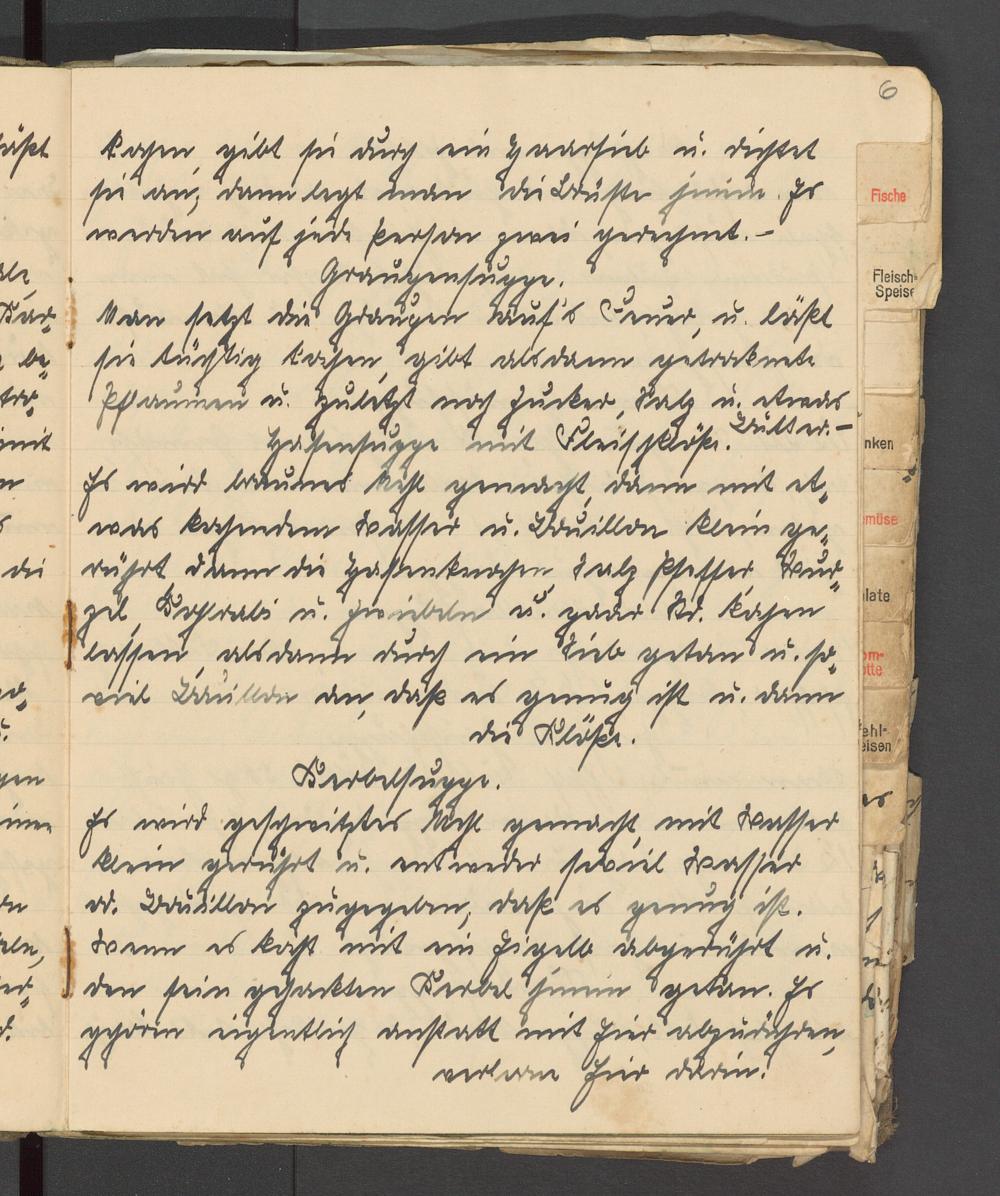 6
kochen gibt sie durch ein Haarsieb u. dichtet
sie an, dann legt man die Würste hinein. Es
werden auf jede Person zwei gerechnet.–
Graupensuppe.
Man setzt die Graupen auf's Feuer, u. läßt
sie tüchtig kochen, gibt alsdann getrocknete
Pflaumen u. zuletzt noch Zucker, Salz u. etwas
Butter.–
Hasensuppe mit Fleischklöße.
Es wird braunes Mehl gemacht, dann mit et-
was kochendem Wasser u. Bouillon klein ge-
rührt, dann die Hasenknochen, Salz Pfeffer Wur-
zel, Kohlrabi u. Zwiebeln u. paar St. kochen
lassen, alsdann durch ein Sieb getan u. so-
viel Bouillon an, daß es genug ist u. dann
die Klöße.
Kerbelsuppe.
Es wird geschwitztes Mehl gemacht, mit Wasser
klein gerührt u. entweder soviel Wasser
od. Bouillon zugegeben, daß es genug ist.
Wenn es kocht mit ein Eigelb abgerührt u.
den fein gehackten Kerbel hinein getan. Es
gehören eigentlich anstatt mit Eier abzurühren,
verlorne Eier darin.
Fische
Fleisch-
Speise
nken
emüse
late
om-
otte
ehl-
eisen